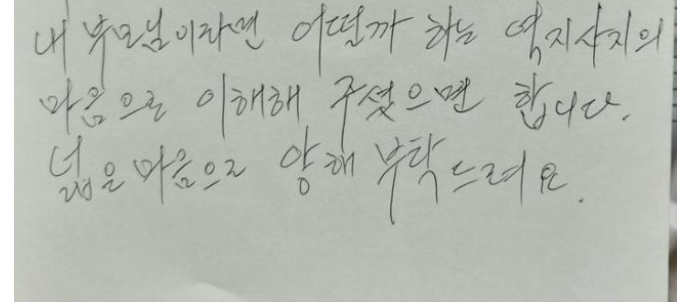 내 부모님이라면 어떨까 하는 역지사지의
마음으로 이해해 주셨으면 합니다.
넓은 마음으로 양해 부탁드려요.